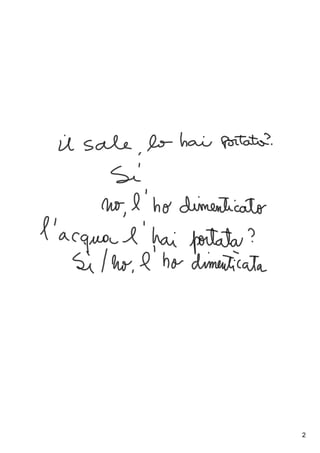 il sale, lo hai portato?
Sì
no, l'ho dimenticato
l'acqua l'hai portata?
Sì/no, l'ho dimenticata
2